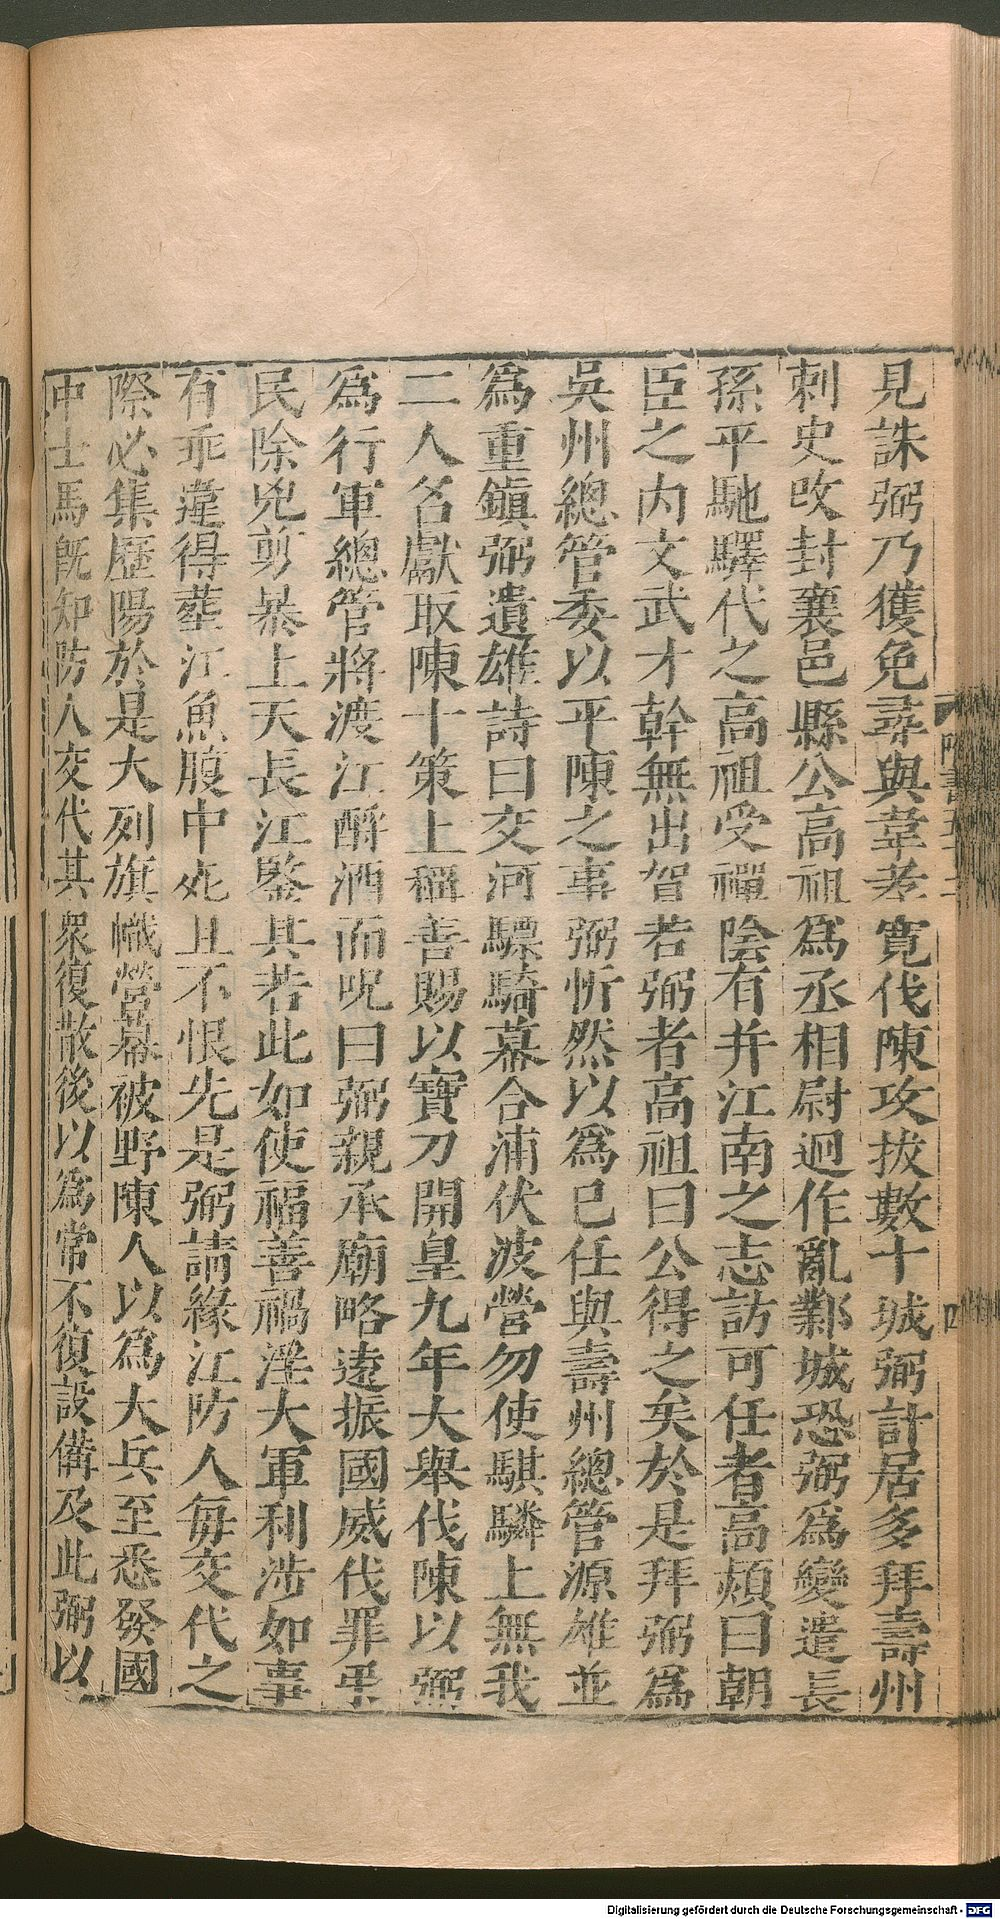 見誅弼乃獲免尋與韋孝寬伐陳攻拔數十城弼計居多拜壽州
刺史改封襄邑縣公高祖爲丞相尉迥作亂鄴城恐弼爲變遣長
孫平馳驛代之高祖受禪陰有并江南之志訪可任者高熲曰朝
臣之內文武才幹無出賀若弼者高祖曰公得之矣於是拜弼爲
吳州總管委以平陳之事弼忻然以爲已任與壽州總管源雄並
爲重鎭弼遺雄詩曰交河驃騎幕合浦伏波營勿使騏驎上無我
二人名獻取陳十策上稱善賜以寶刀開皇九年大舉伐陳以弼
爲行軍總管將渡江酹酒而呪曰弼親承廟略遠振國威伐罪弔
民除兇剪暴上天長江鑒其若此如使福善禍淫大軍利涉如事
有乖違得葬江魚腹中死且不恨先是弼請緣江防人每交代之
際必集歷陽於是大列旗幟營幕被野陳人以爲大兵至悉發國
中士馬旣知防人交代其衆復散後以爲常不復設備及此弼以
Digitalisierung gefördert durch die Deutsche Forschungsgemeinschaft - DFG